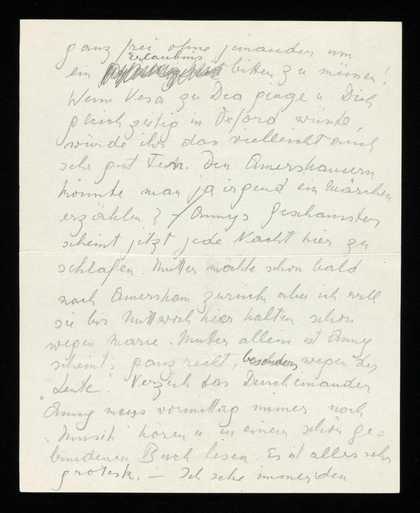 ganz frei ohne jemanden um
ein Erlaubnis bitten zu müssen!
Wenn Vera zu Dea ginge u Dich
gleichzeitig in Oxford wüsste,
würde ihr das vielleicht auch
sehr gut tun. Den Amershamern
könnte man ja irgend ein Märchen
erzählen? Annys
scheint jetzt jede Nacht hier zu
schlafen. Mutter möchte schon bald
nach Amersham zurück, aber ich will
sie bis Mittwoch hier halten schon
wegen Marie. Mutter allein ist Anny
scheint's ganz recht, besonders wegen der
"Leute". Verzeih das Durcheinander
Anny muss vormittag immer noch
"Musik" hören u in einem schön ge-
bundenen Buch lesen. Es ist alles sehr
grotesk. — Ich sehe immer den